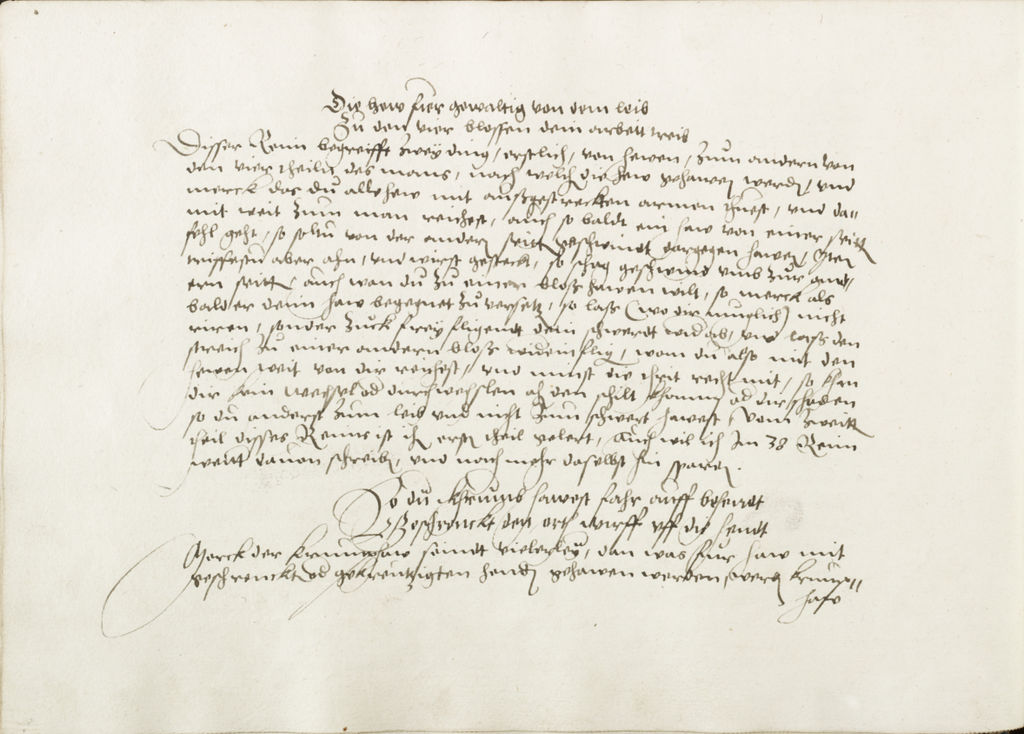 Die hew fier gewaltig von dem leib
Zu den vier blossen dein arbeit treib
Disser Reim begreifft zwey ding, erstlich, von hewen, zum andern von
den vier theiln des mans, nach welch die hew gehawen werden, und
merck das du alle hew mit außgestreckten armen thuest, und da-
mit weit zum man reichest, auch so baldt ein haw von einer seitt
fehl geht, so soltu von der andern seitt geschwindt dargegen hawen,
triffestu aber ahn, und wirst gesteckt, so schlag geschwind umb zur and-
ern seitt, auch wan du zu einer blosß hawen wilt, so merck als
balt er deim haw begegnet zu versetzen, so laß (wo dir muglich) nicht
rieren, sonder zuck frey fligendt dein schwerdt wider ab, und laß den
streich zu einer andern bloß widereinfligen, wan du also mit den
hewen weit von dir reichest, und nimst die thrit recht mit, so khan
dir kein wechsel od durchwechslen ahn den schilt khommen od dir schaden
so du anderst zum leib und nicht zum schwert hawest, vom zweitten
theil disses Reims ist im ersten theil gelert, auch wil ich Im 38 Reim
weitt davon schreiben, und noch mehr daselbst hin sparen.
So du Khrumb hawest fahr auff behendt
Geschrenckt den ort wirff uff die hendt
Merck der krumphaw sindt vielerley, dan was fur haw mit
geschrenckten od gekreutzigten henden gehawen werden, werden krump-
haw